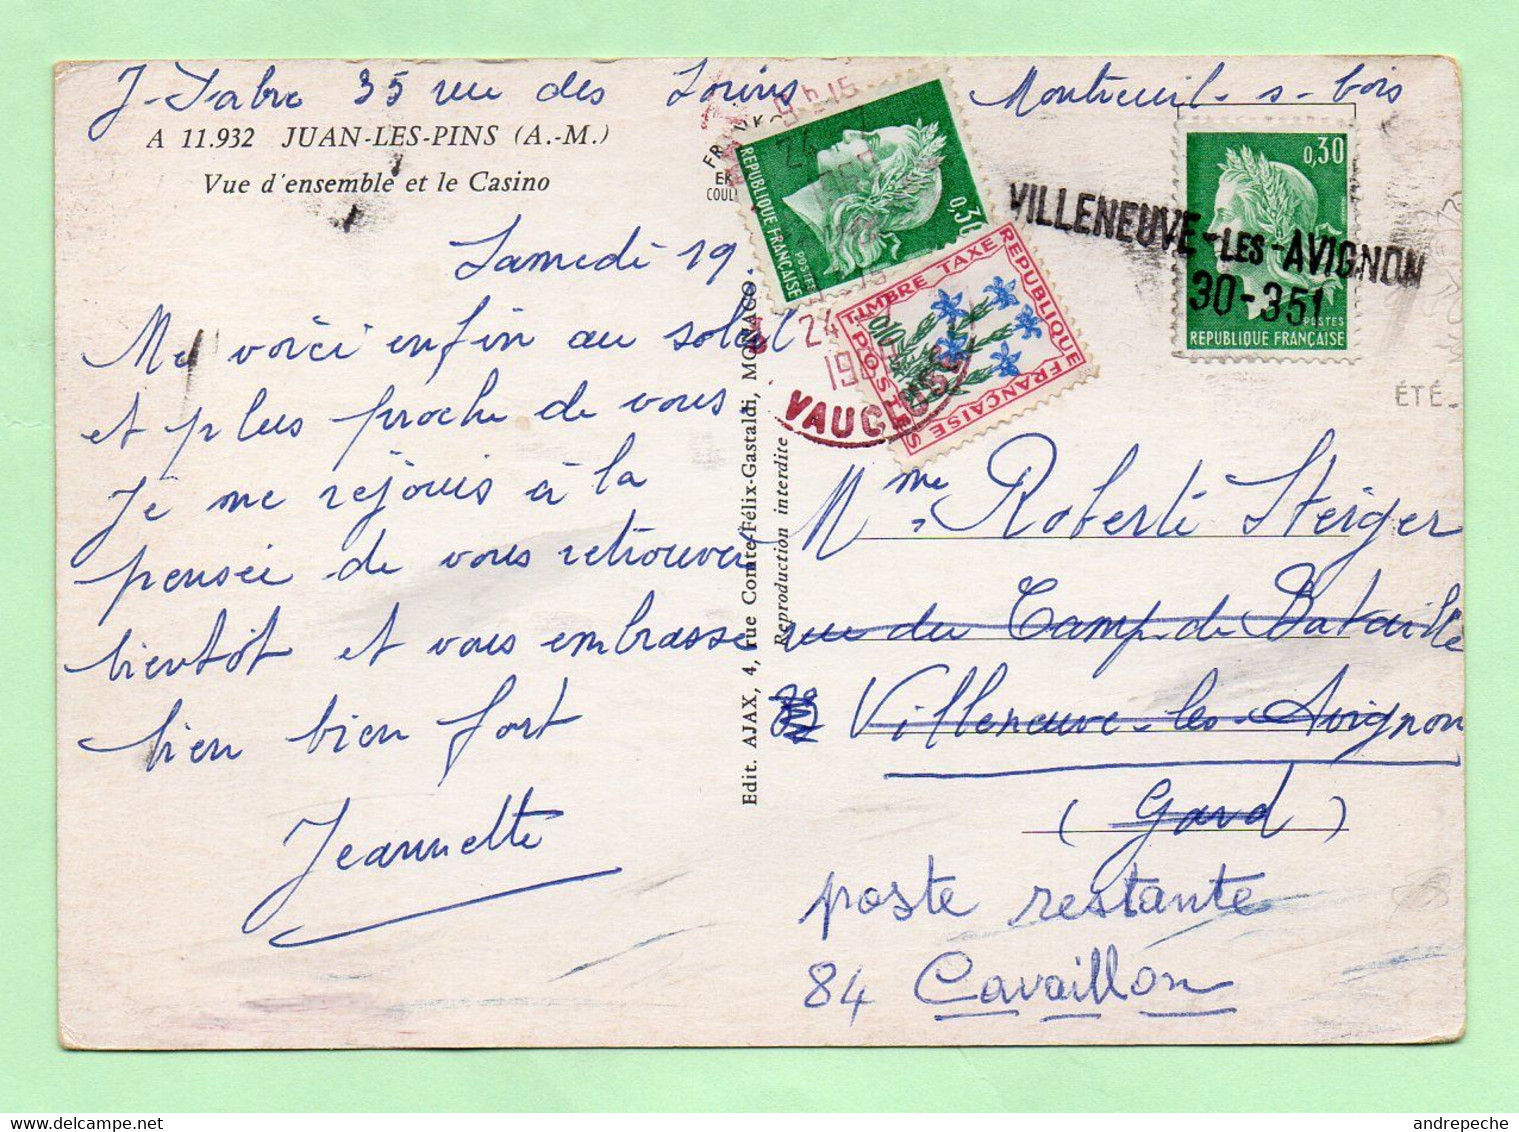 J. Fabre 35 rue des Lorins Montreuil-s-bois
A 11.932 JUAN-LES-PINS (A.-M.)
Vue d'ensemble et le Casino
Samedi 19.
Me voici enfin au soleil
et plus proche de vous.
Je me réjouis à la
pensée de vous retrouver
bientôt et vous embrasse
bien bien fort
Jeannette
Edit. AJAX, 4, rue Comte-Félix-Gastaldi, MONACO
Reproduction interdite
REPUBLIQUE FRANÇAISE
POSTES
0,30
TIMBRE TAXE
REPUBLIQUE FRANÇAISE
POSTES
0,10
24
VAUCLUSE
0,30
POSTES
REPUBLIQUE FRANÇAISE
VILLENEUVE-LES-AVIGNON
30-351
ÉTÉ-
Mme Roberte Steiger
rue du Camp de Bataille
Villeneuve-les-Avignon
(Gard)
poste restante
84 Cavaillon
andrepeche